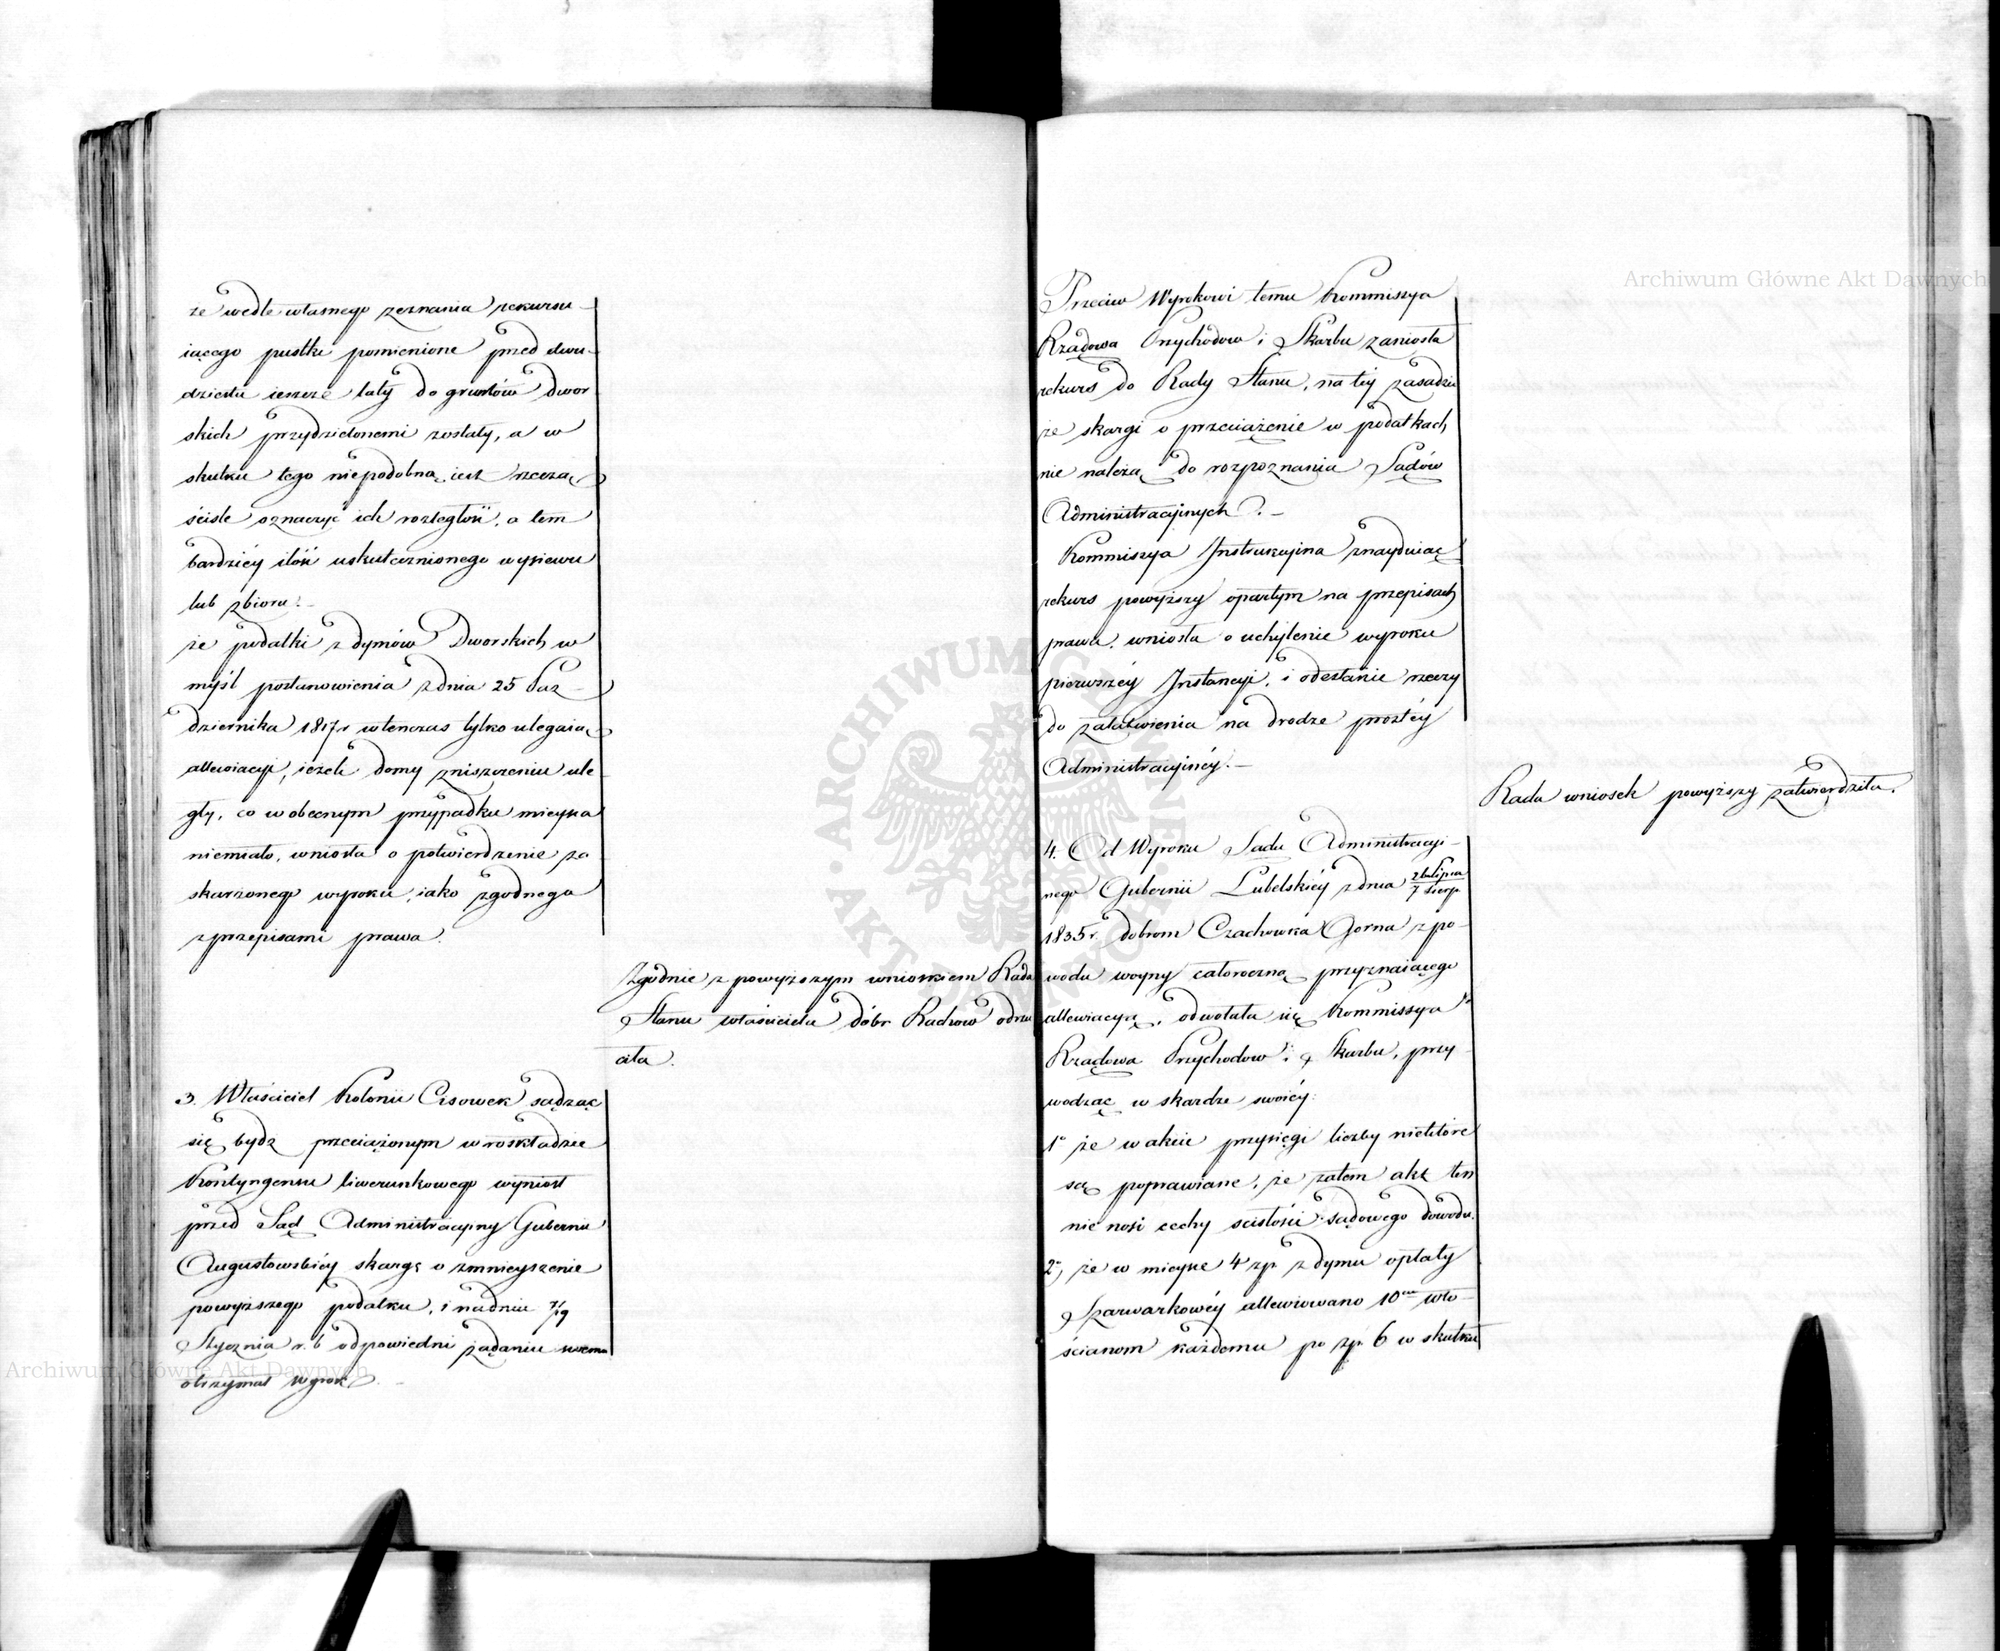 że wedle własnego zeznania rekursu-
iącego pustki pomienione przed dwu-
dziestu ieszcze laty do gruntów dwor
skich przydzielonemi zostały, a w
skutku tego niepodobną iest rzeczą
ściśle oznaczyć ich rozległość, a tem
bardziéy ilość uskutecznionego wysiewu
lub zbioru.-
że podatki z dymów Dworskich w
myśl postanowienia z dnia 25 Paz-
dziernika 1817 r wtenczas tylko ulegaią
allewiacyi, ieżeli domy zniszczeniu ule
gły, co w obecnym przypadku mieysca
niemiało, wniosła o potwierdzenie za
skarżonego wyroku, iako zgodnego
z przepisami prawa.
Zgodnie z powyższym wnioskiem Rada
Stanu właściciela dóbr Radzow odrzu
ciła.
3. Właściciel Kolonii Cisowek sądząc
się bydź przeciążonym w roskładzie
Kontyngensu liwerunkowego wyniósł
przed Sąd Administracyiny Gubernii
Augustowskiéy skargę o zmnieyszenie
powyższego podatku, i nadniu 7/19
Stycznia r. b odpowiedni żądaniu swemu
otrzymał Wyrok.-
Przeciw Wyrokowi temu Kommissya
Rządowa Przychodow i Skarbu zaniosła
rekurs do Rady Stanu, na téy zasadzie
że skargi o przeciążenie w podatkach
nie należą do rozpoznania Sądów
Administracyinych.-
Kommissya Instrukcyina znayduiąc
rekurs powyższy opartym na przepisach
prawa, wniosła o uchylenie wyroku
pierwszéy Instancyi, i odesłanie rzeczy
do załatwienia na drodze prostéy
Administracyinéy.-
Rada wniosek powyższy zatwierdziła.
4. Od Wyroku Sądu Administracyi-
nego Gubernii Lubelskiéy z dnia 26 Lipca/7 Sierp
1835 r. dobrom Czachowka Gorna z po-
wodu woyny całoroczną przyznaiącego
allewiacyą, odwołała się Kommissya
Rządowa Przychodow i Skarbu, przy-
wodząc w skardze swoiéy:
1° że w akcie przysięgi liczby niektóre
są poprawiane, że zatem akt ten
nie nosi cechy scisłości sądowego dowodu.
2°, że w mieysce 4 zp z dymu opłaty
Szarwarkowéy allewiowano 10ciu wło-
ścianom każdemu po zp. 6 w skutku
Archiwum Główne Akt Dawnych
Archiwum Główne Akt Dawnych